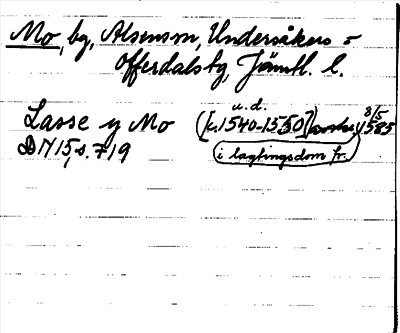 Mo, by, Alsens sn, Undersåkers =
Offerdals tg, Jämtl. l.
u.d. 8/5
Lasse y Mo ([c. 1540-1550] 1585
DN 15, s. 719 i lagtingsdom fr.